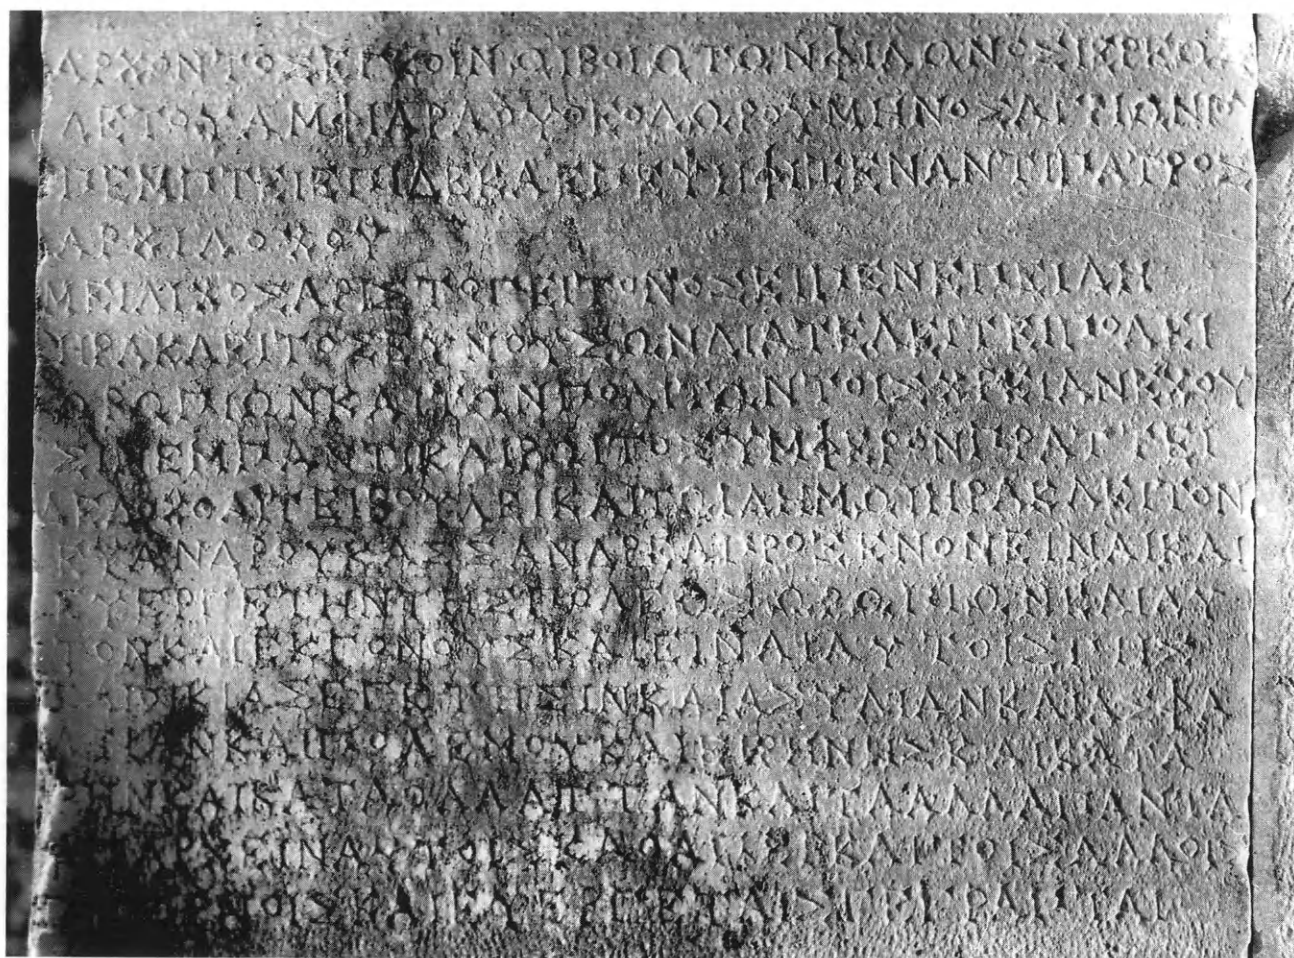 ΑΡΧΟΝΤΟΣΕΓΚΟΙΝΩΙΒΟΙΩΤΩΝΦΙΛΩΝΟΣΙΕΡΕΩΣ
ΔΕΤΟΥΑΜΦΙΑΡΑΟΥΟΚΟΔΩΡΟΥΜΗΝΟΣ
ΠΕΜΠΤΕΙΕΠΙΔΕΚΑΕΠΕΨΗΦΙΣΕΝΑΝΤΙΠΑΤΡΟΣ
ΑΡΧΙΛΟΧΟΥ
ΜΕΙΛΙΧΟΣΑΡΙΣΤΟΓΕΙΤΟΝΟΣΕΙΠΕΝΕΠΕΙΔΗ
ΗΡΑΚΛΕΙΤΟΣΕΥΝΟΥΣΩΝΔΙΑΤΕΛΕΙΤΕΙΠΟΛΕΙ
ΩΡΩΠΙΩΝΚΑΙΤΩΝΠΟΛΙΤΩΝΤΟΙΣΧΡΕΙΑΝΕΧΟΥ
ΣΙΝΕΜΠΑΝΤΙΚΑΙΡΩΙΤΟΣΥΜΦΕΡΟΝΠΡΑΤΤΕΙ
ΔΕΔΟΧΘΑΙΤΕΙΒΟΥΛΕΙΚΑΙΤΩΙΔΗΜΩΙΗΡΑΚΛΕΙΤΟΝ
ΕΥΑΝΔΡΟΥΚΑΣΣΑΝΔΡΕΑΠΡΟΞΕΝΟΝΕΙΝΑΙΚΑΙ
ΕΥΕΡΓΕΤΗΝΤΗΣΠΟΛΕΟΣΩΡΩΠΙΩΝΚΑΙΑΥ
ΤΟΝΚΑΙΕΚΓΟΝΟΥΣΚΑΙΕΙΝΑΙΑΥΤΟΙΣΓΗΣ
ΚΑΙΟΙΚΙΑΣΕΓΚΤΗΣΙΝΚΑΙΑΣΥΛΙΑΝΚΑΙΑΣΦΑ
ΛΕΙΑΝΚΑΙΠΟΛΕΜΟΥΚΑΙΕΙΡΗΝΗΣΚΑΙΚΑΤΑ
ΓΗΝΚΑΙΚΑΤΑΘΑΛΑΤΤΑΝΚΑΙΤΑΛΛΑΠΑΝΤΑ
ΥΠΑΡΧΕΙΝΑΥΤΟΙΣΚΑΘΑΠΕΡΚΑΙΤΟΙΣΑΛΛΟΙΣ
ΠΡΟΞΕΝΟΙΣΚΑΙΕΥΕΡΓΕΤΑΙΣΓΕΓΡΑΠΤΑΙ